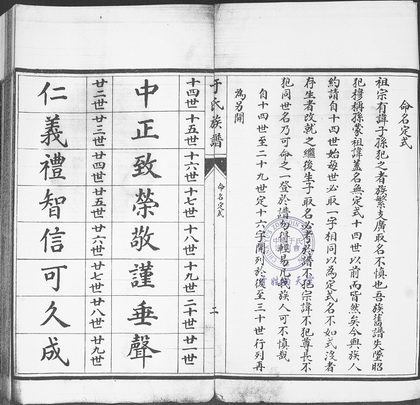 命名定式
祖宗有諱子孫犯之者族繁支廣取名不慎也吾族舊譜失墜昭
犯穆稱孫蒙祖諱蓋名無定式十四世以前而皆然矣今與族人
約請自十四世始每世必取一字相同以為定式名不如式沒者
存生者改就之繼後生子取名必考於譜不犯宗諱不犯尊長不
犯同世名乃可命之一登於譜勿得輕易凡我族人可不慎哉
自十四世至二十九世定十六字開列於後至三十世行列再
為另開
于氏族譜
命名定式
二
十四世 十五世 十六世 十七世 十八世 十九世 二十世 廿一世
中正致榮敬謹垂聲
廿二世 廿三世 廿四世 廿五世 廿六世 廿七世 廿八世 廿九世
仁義禮智信可久成